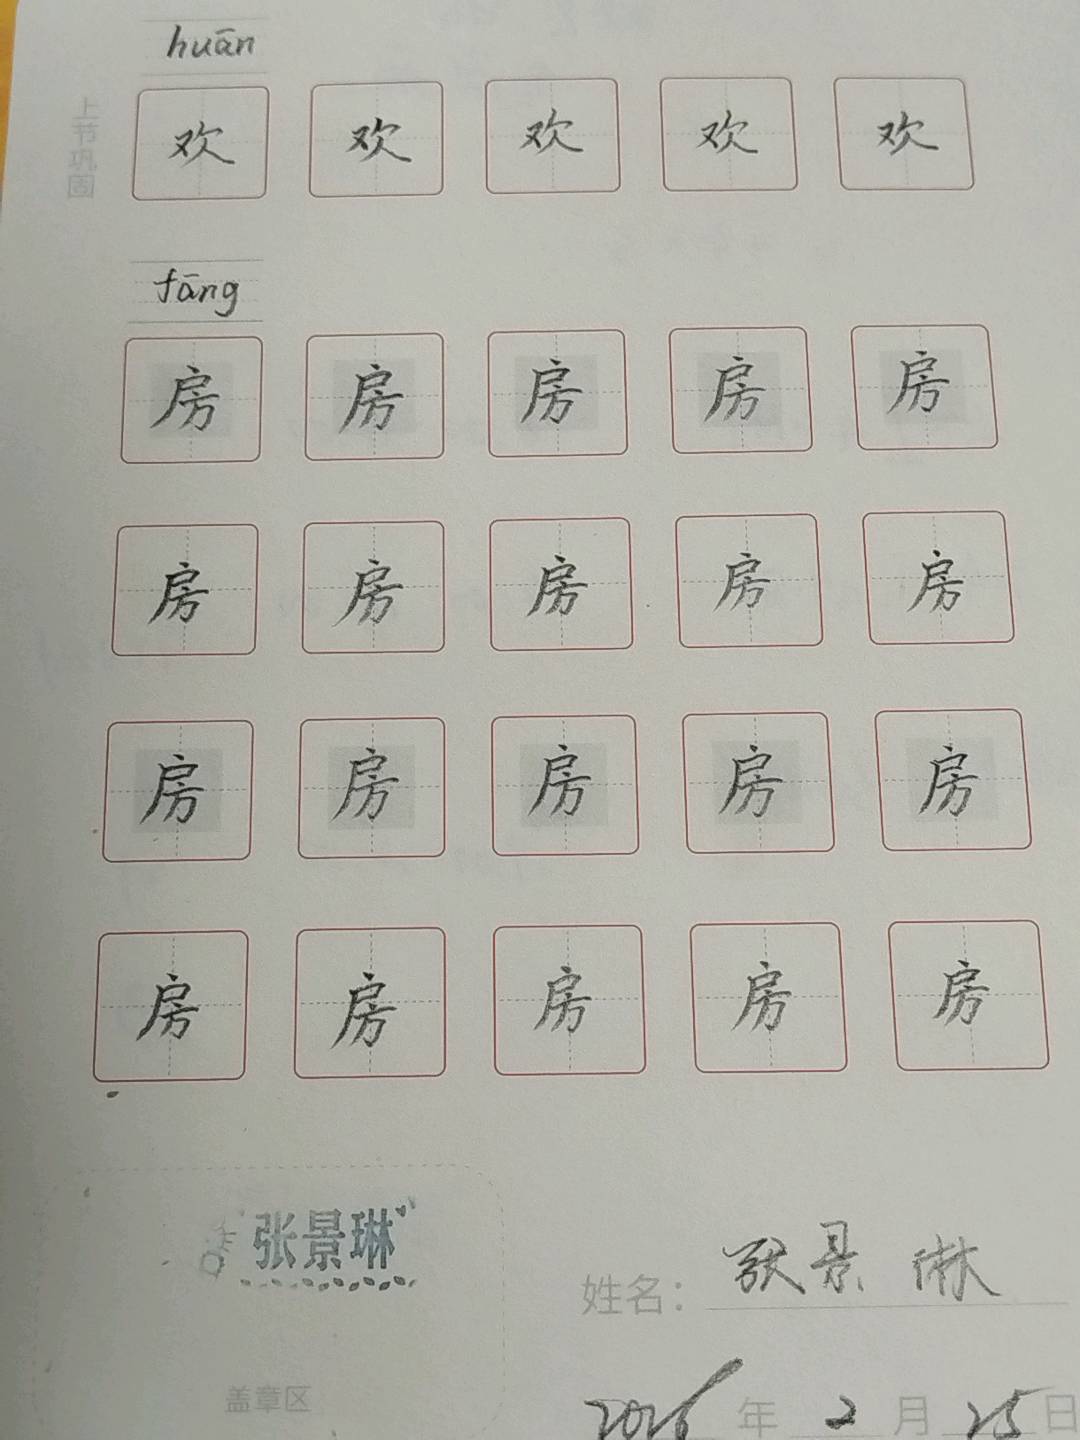 huān
上节巩固
欢 欢 欢 欢 欢
fāng
房 房 房 房 房
房 房 房 房 房
房 房 房 房 房
房 房 房 房 房
张景琳
姓名：张景琳
盖章区
2026年2月25日